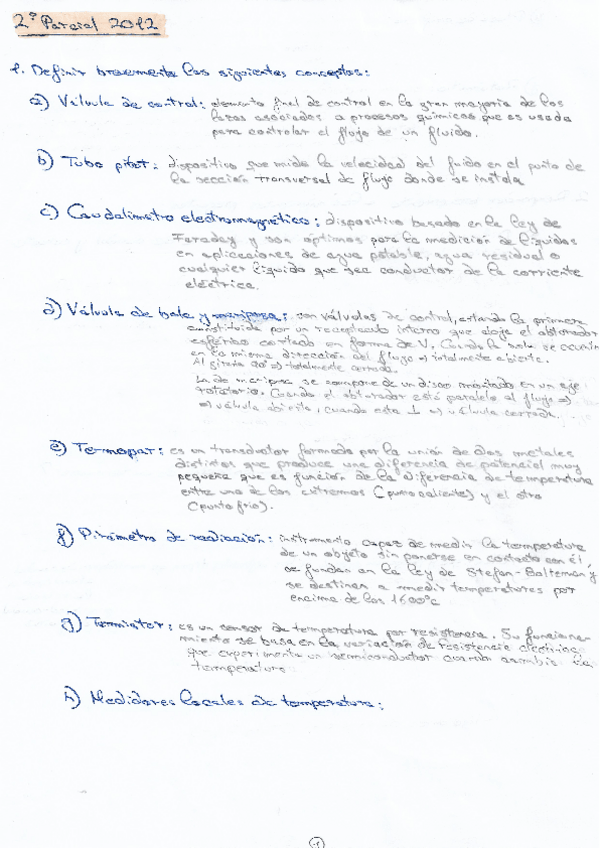 2º Parcial 2012
1. Definir brevemente los siguientes conceptos:
a) Válvula de control: elemento final de control en la gran mayoría de los
lazos asociados a procesos químicos que es usada
para controlar el flujo de un fluido.
b) Tubo pitot: dispositivo que mide la velocidad del fluido en el punto de
la sección transversal de flujo donde se instala
c) Caudalímetro electromagnético: dispositivo basado en la ley de
Faraday y son óptimos para la medición de líquidos
en aplicaciones de agua potable, agua residual o
cualquier líquido que sea conductor de la corriente
eléctrica.
d) Válvula de bola y mariposa: son válvulas de control, estando la primera
constituida por un receptáculo interno que aloja el obturador
esférico cortado en forma de V. Cuando la bola se
en la misma dirección del flujo => totalmente abierta.
Al girarla 90° => totalmente cerrada.
La de mariposa se compone de un disco montado en un eje
rotatorio. Cuando el obturador está paralelo al flujo =>
=> válvula abierta, cuando esta ⊥ => válvula cerrada.
e) Termopar: es un transductor formado por la unión de dos metales
distintos que produce una diferencia de potencial muy
pequeña que es función de la diferencia de temperatura
entre uno de los extremos (punto caliente) y el otro
(punto frío).
f) Pirómetro de radiación: instrumento capaz de medir la temperatura
de un objeto sin ponerse en contacto con él,
se fundan en la ley de Stefan-Boltzman y
se destinan a medir temperaturas por
encima de los 1600°C
g) Termistor: es un sensor de temperatura por resistencia. Su funciona-
miento se basa en la variación de resistencia eléctrica
que experimenta un semiconductor cuando cambia la
temperatura
h) Medidores locales de temperatura: